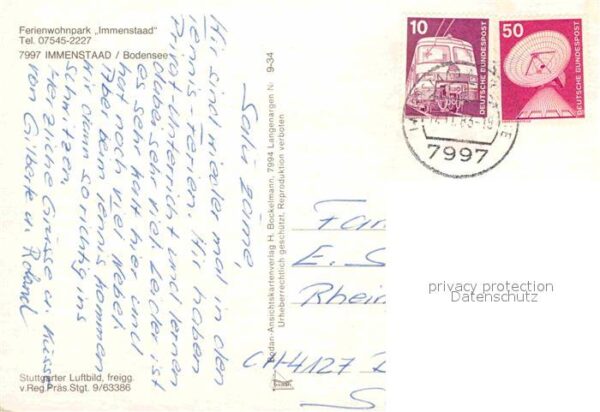 Ferienwohnpark „Immenstaad"
Tel. 07545-2227
7997 IMMENSTAAD / Bodensee
Salü zäme,
Wir sind wieder mal in den
Tennis Ferien. Wir haben
Privat-Unterricht und lernen
dabei sehr viel. Leider ist
es sehr kalt hier und
hat noch viel Nebel.
Aber beim Tennis kommen
wir dann so richtig ins
Schwitzen.
Herzliche Grüsse u. Küsse
von Gilberte u. Roland
Stuttgarter Luftbild, freigg.
v.Reg.Präs.Stgt. 9/63386
Bodan-Ansichtskartenverlag H. Bockelmann, 7994 Langenargen N. 9-34
Urheberrechtlich geschützt. Reproduktion verboten
10
DEUTSCHE BUNDESPOST
50
DEUTSCHE BUNDESPOST
7997
Fam
E. S
Rhein
CH 4127
privacy protection
Datenschutz